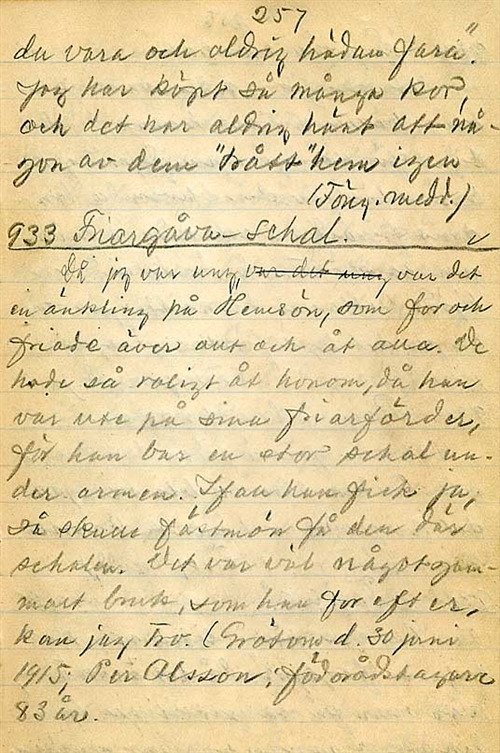 257
du vara och aldrig hädan fara".
Jag har köpt så många kor,
och det har aldrig hänt att nå-
gon av dem "trått" hem igen
(Förug. medd.)
933 Friargåva - schal.
Då jag var ung, var det ung var det
en änkling på Hemsön, som for och
friade över aut och åt alla. De
hade så roligt åt honom, då han
var ute på sina friarfärder,
för han bar en stor schal un-
der armen. Ifall han fick ja,
så skulle fästmön få den där
schalen. Det var väl något gam-
malt bruk, som han for efter,
kan jag tro. (Grötom d. 30 juni
1915, Per Olsson, födorådstagare
83 år.